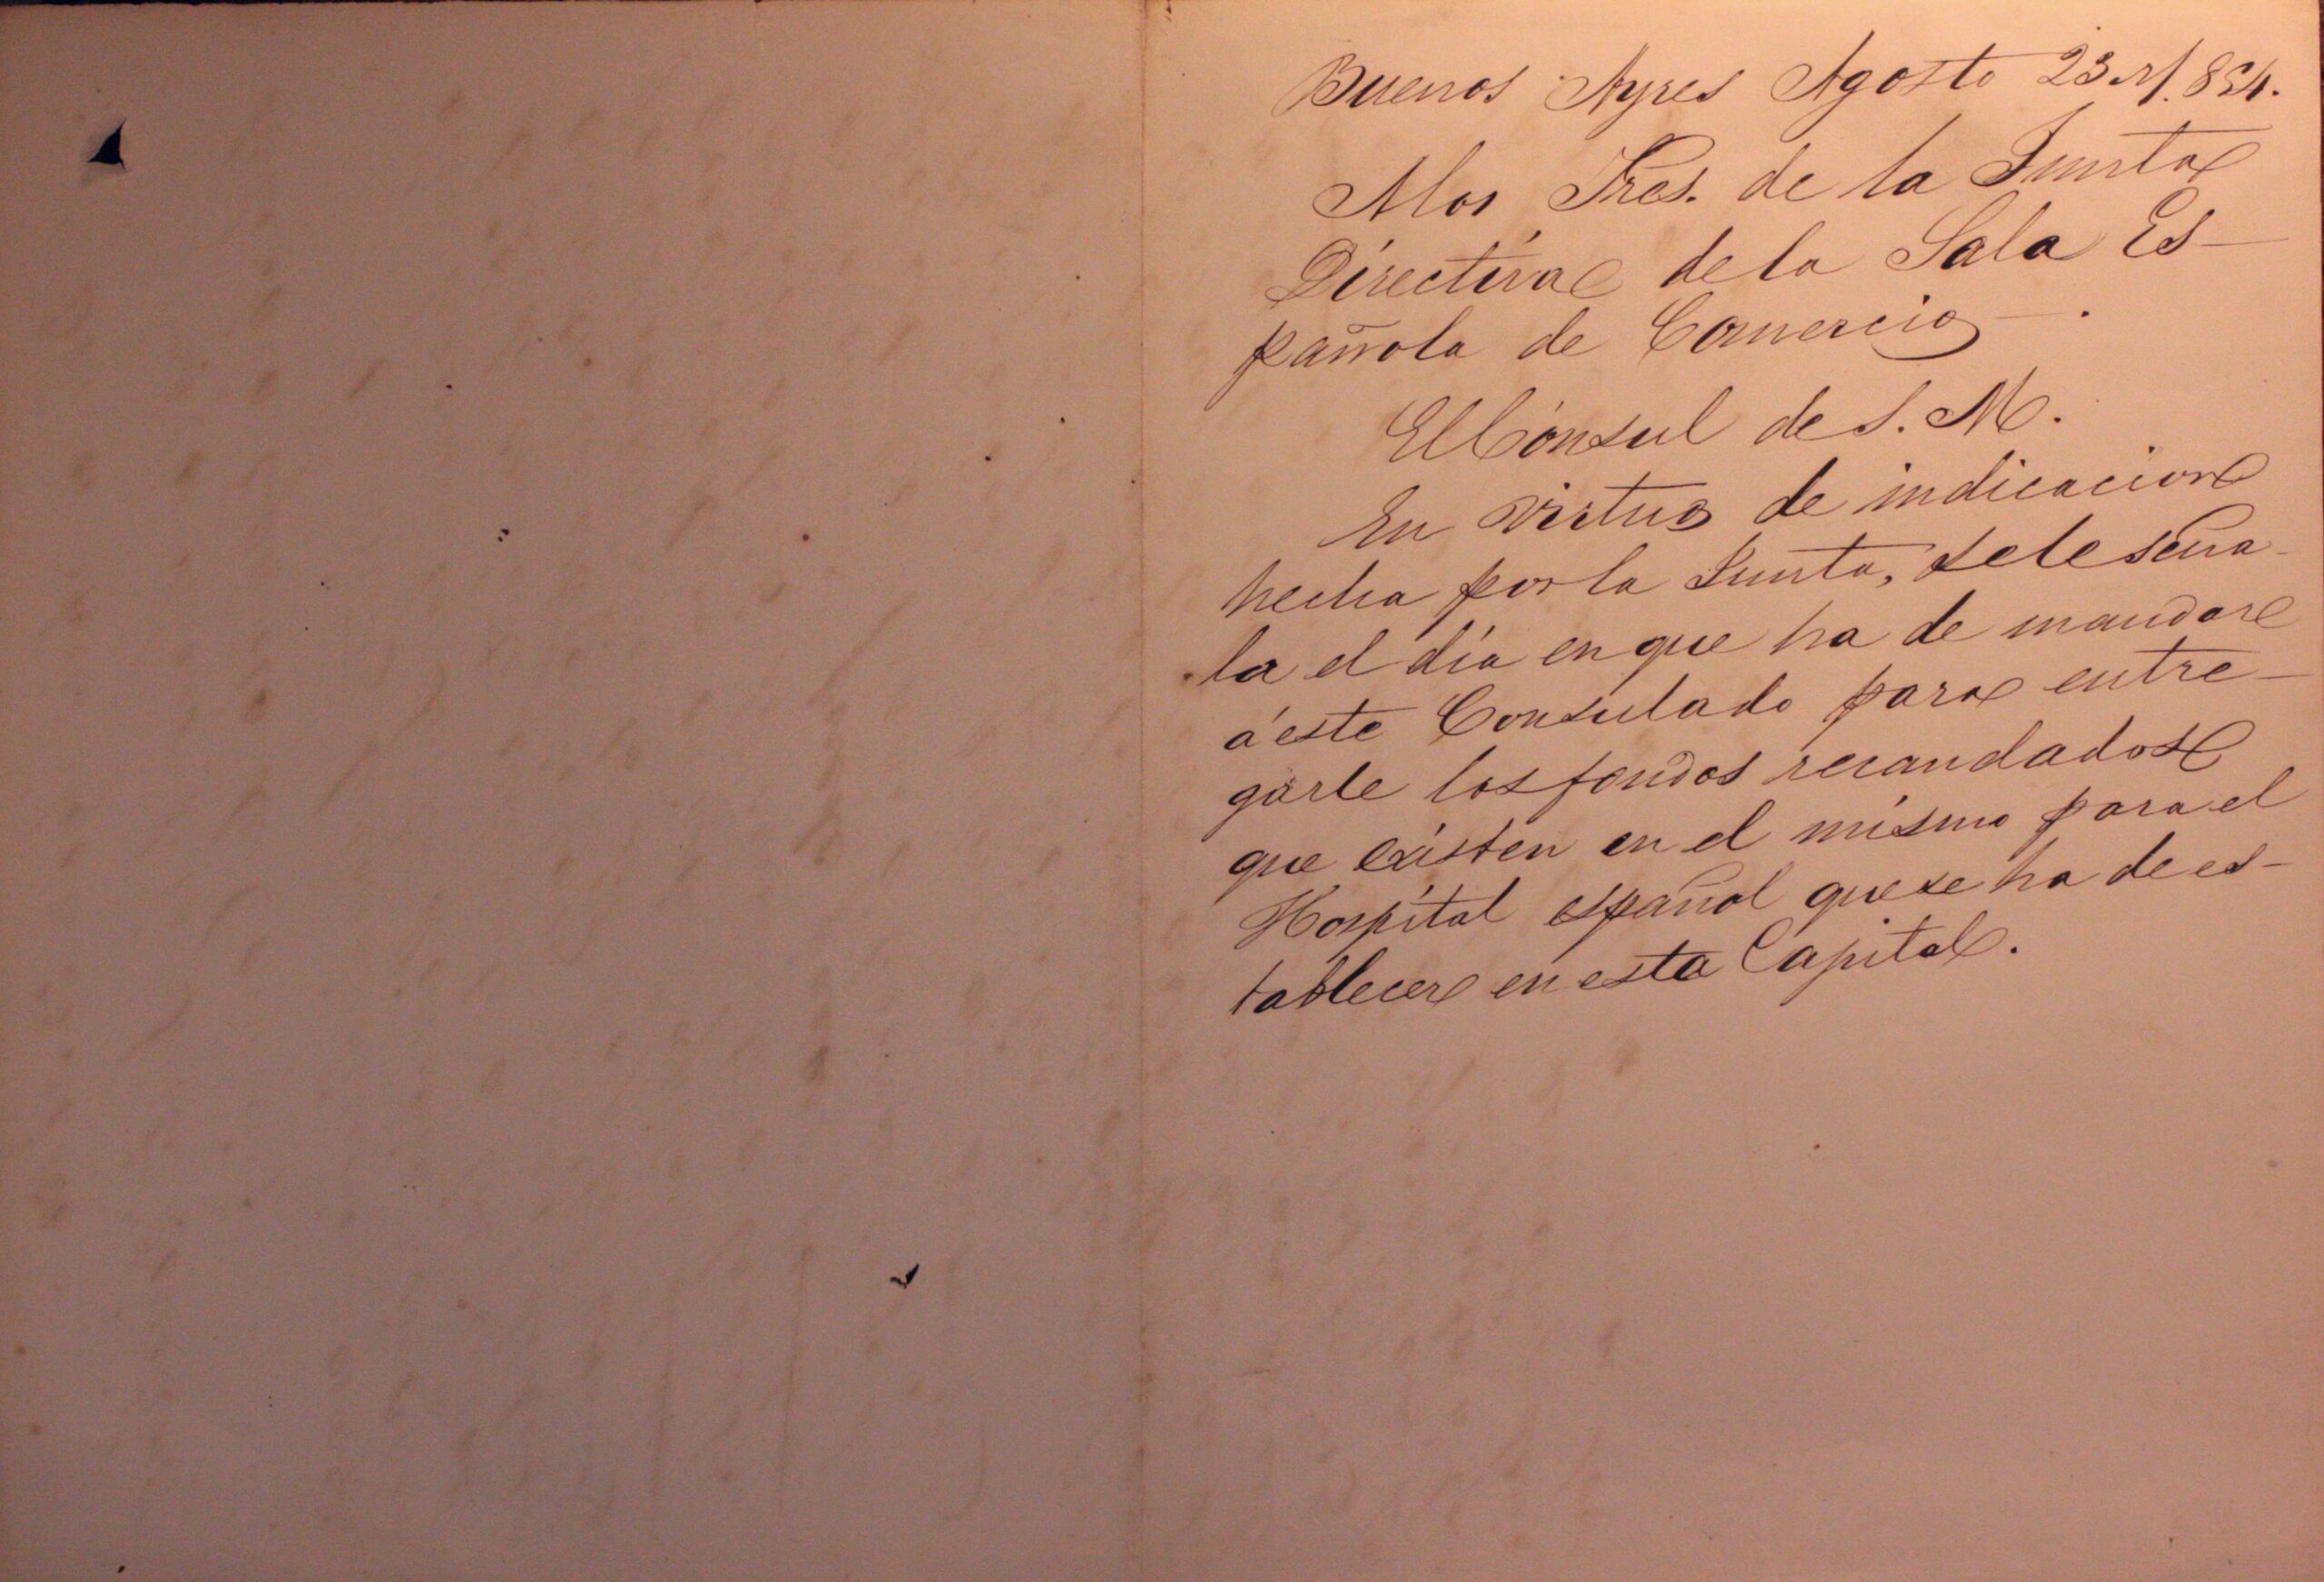 Buenos Ayres Agosto 23 /1.854.
A los Sres. de la Junta
Directiva de la Sala Es-
pañola de Comercio.
El Cónsul de S. M.
En virtud de indicacion
hecha por la Junta, se le seña-
la el día en que ha de mandar
á este Consulado para entre-
garle los fondos recaudados
que existen en el mismo para el
Hospital español que se ha de es-
tablecer en esta Capital.